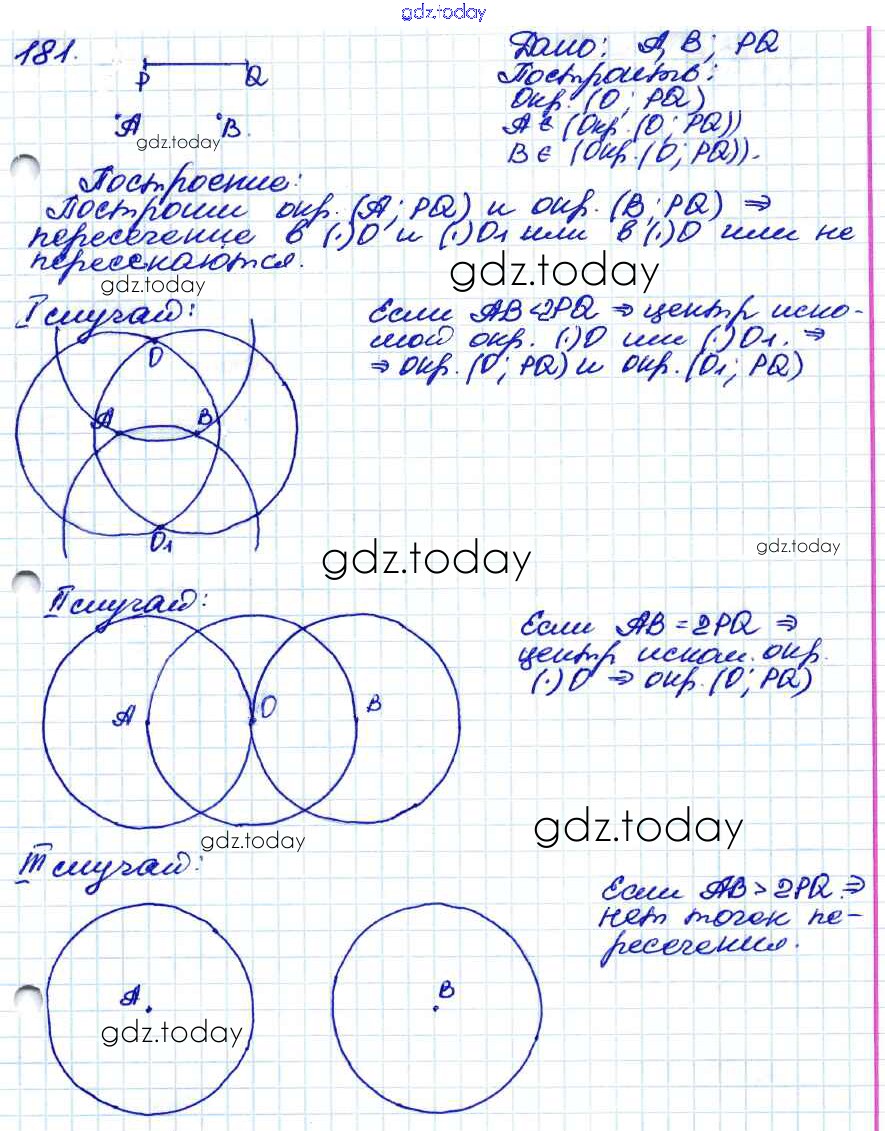 gdz.today
181.
P Q
A B.
gdz.today
Дано: A, B; PQ
Построить:
Окр. (O; PQ)
A ∈ (Окр. (O; PQ))
B ∈ (Окр. (O; PQ)).
Построение:
Построим окр. (A; PQ) и окр. (B; PQ) ⇒
пересечение в (·)O и (·)O1 или в (·)O или не
пересекаются.
gdz.today
gdz.today
I случай:
Если AB<2PQ ⇒ центр иско-
мой окр. (·)O или (·)O1. ⇒
⇒ окр. (O; PQ) и окр. (O1; PQ)
O
A B
O1
gdz.today
gdz.today
II случай:
Если AB = 2PQ ⇒
центр иском. окр.
(·)O ⇒ окр. (O; PQ)
A O B
gdz.today
gdz.today
III случай:
Если AB > 2PQ ⇒
нет точек пе-
ресечения.
A B
gdz.today